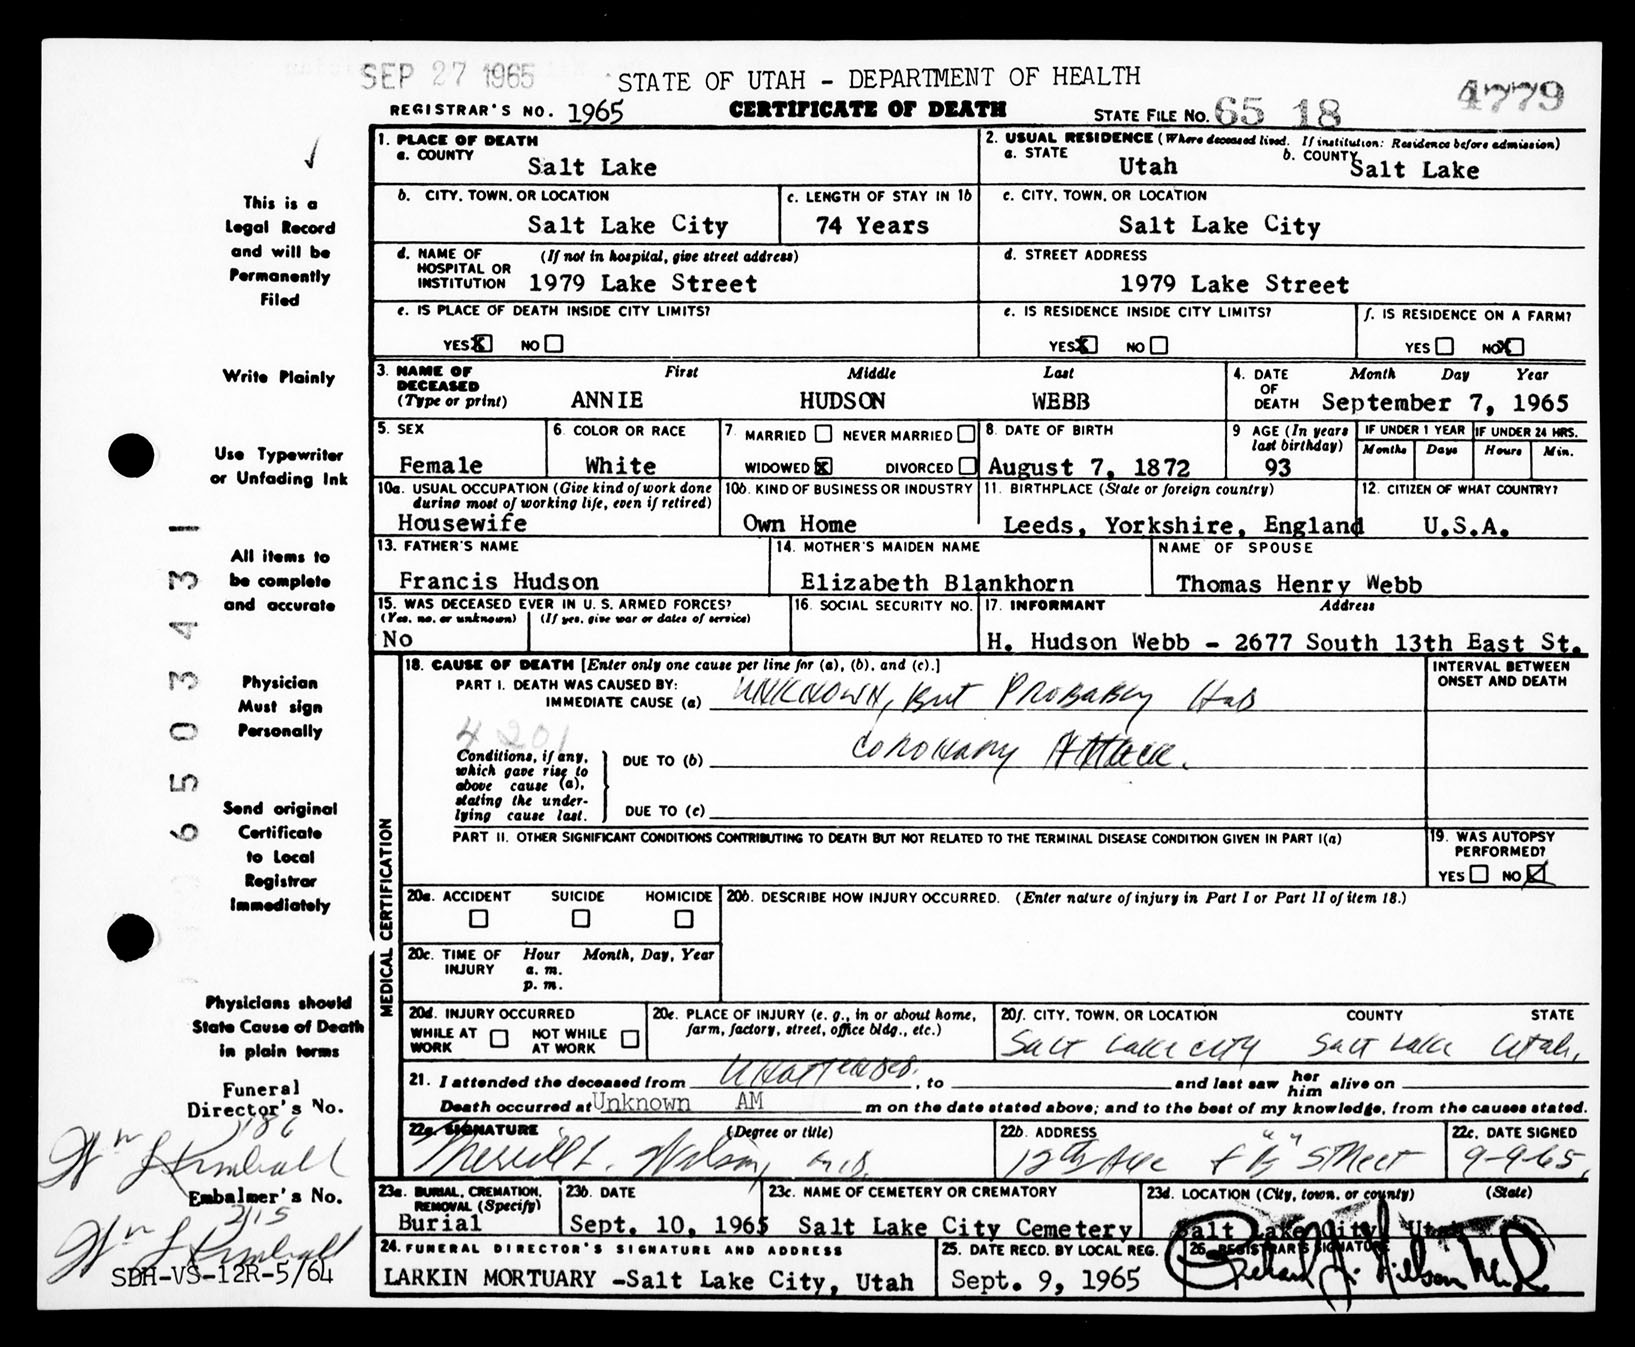 SEP 27 1965 STATE OF UTAH - DEPARTMENT OF HEALTH 4779
REGISTRAR'S NO. 1965 CERTIFICATE OF DEATH STATE FILE NO. 65 18
1. PLACE OF DEATH
a. COUNTY
Salt Lake
2. USUAL RESIDENCE (Where deceased lived. If institution: Residence before admission)
a. STATE Utah b. COUNTY Salt Lake
b. CITY, TOWN, OR LOCATION
Salt Lake City
c. LENGTH OF STAY IN 1b
74 Years
c. CITY, TOWN, OR LOCATION
Salt Lake City
d. NAME OF HOSPITAL OR INSTITUTION (If not in hospital, give street address)
1979 Lake Street
d. STREET ADDRESS
1979 Lake Street
e. IS PLACE OF DEATH INSIDE CITY LIMITS?
YES X NO
e. IS RESIDENCE INSIDE CITY LIMITS?
YES X NO
f. IS RESIDENCE ON A FARM?
YES NO X
3. NAME OF DECEASED (Type or print) First Middle Last
ANNIE HUDSON WEBB
4. DATE OF DEATH Month Day Year
September 7, 1965
5. SEX
Female
6. COLOR OR RACE
White
7. MARRIED NEVER MARRIED
WIDOWED X DIVORCED
8. DATE OF BIRTH
August 7, 1872
9 AGE (In years last birthday)
93
IF UNDER 1 YEAR
Months Days
IF UNDER 24 HRS.
Hours Min.
10a. USUAL OCCUPATION (Give kind of work done during most of working life, even if retired)
Housewife
10b. KIND OF BUSINESS OR INDUSTRY
Own Home
11. BIRTHPLACE (State or foreign country)
Leeds, Yorkshire, England
12. CITIZEN OF WHAT COUNTRY?
U.S.A.
13. FATHER'S NAME
Francis Hudson
14. MOTHER'S MAIDEN NAME
Elizabeth Blankhorn
NAME OF SPOUSE
Thomas Henry Webb
15. WAS DECEASED EVER IN U. S. ARMED FORCES?
(Yes, no, or unknown) (If yes, give war or dates of service)
No
16. SOCIAL SECURITY NO.
17. INFORMANT Address
H. Hudson Webb - 2677 South 13th East St.
MEDICAL CERTIFICATION
18. CAUSE OF DEATH [Enter only one cause per line for (a), (b), and (c).]
PART I. DEATH WAS CAUSED BY:
IMMEDIATE CAUSE (a) UNKNOWN, But Probably Had
4201
Conditions, if any, which gave rise to above cause (a), stating the underlying cause last.
DUE TO (b) Coronary Attack.
DUE TO (c)
INTERVAL BETWEEN ONSET AND DEATH
PART II. OTHER SIGNIFICANT CONDITIONS CONTRIBUTING TO DEATH BUT NOT RELATED TO THE TERMINAL DISEASE CONDITION GIVEN IN PART I(a)
19. WAS AUTOPSY PERFORMED?
YES NO X
20a. ACCIDENT SUICIDE HOMICIDE
20b. DESCRIBE HOW INJURY OCCURRED. (Enter nature of injury in Part I or Part II of item 18.)
20c. TIME OF INJURY Hour Month, Day, Year
a. m.
p. m.
20d. INJURY OCCURRED
WHILE AT WORK NOT WHILE AT WORK
20e. PLACE OF INJURY (e. g., in or about home, farm, factory, street, office bldg., etc.)
20f. CITY, TOWN, OR LOCATION COUNTY STATE
Salt Lake City Salt Lake Utah.
21. I attended the deceased from Unattended. , to and last saw her him alive on
Death occurred at Unknown AM m on the date stated above; and to the best of my knowledge, from the causes stated.
22a. SIGNATURE (Degree or title)
Merrill L. Wilson, M.D.
22b. ADDRESS
12th Ave & "B" Street
22c. DATE SIGNED
9-9-65.
23a. BURIAL, CREMATION, REMOVAL (Specify)
Burial
23b. DATE
Sept. 10, 1965
23c. NAME OF CEMETERY OR CREMATORY
Salt Lake City Cemetery
23d. LOCATION (City, town, or county) (State)
Salt Lake City Utah
24. FUNERAL DIRECTOR'S SIGNATURE AND ADDRESS
LARKIN MORTUARY -Salt Lake City, Utah
25. DATE RECD. BY LOCAL REG.
Sept. 9, 1965
26. REGISTRAR'S SIGNATURE
This is a
Legal Record
and will be
Permanently
Filed
Write Plainly
Use Typewriter
or Unfading Ink
All items to
be complete
and accurate
Physician
Must sign
Personally
Send original
Certificate
to Local
Registrar
Immediately
Physicians should
State Cause of Death
in plain terms
Funeral
Director's No.
186
Wm L Kimball
Embalmer's No.
215
Wm L Kimball
SDH-VS-12R-5/64
6 5 0 3 4 3 1